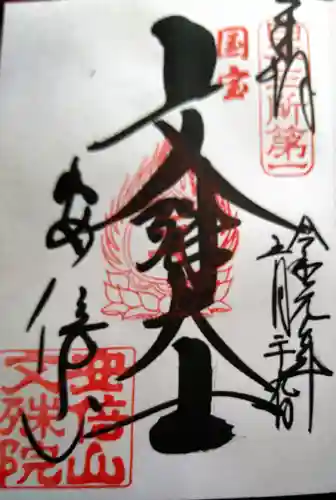 奉拝
第一
国宝
令和元年
五月二十九日
文殊大士
安倍山
安倍山
文殊院